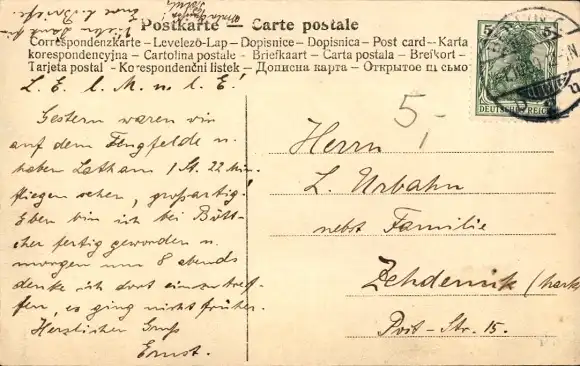 Postkarte — Carte postale
Correspondenzkarte – Levelező-Lap – Dopisnice – Dopisnica – Post card – Karta
korespondencyjna – Cartolina postale – Briefkaart – Carta postala – Brefkort –
Tarjeta postal – Korespondenční lístek – Дописна карта – Открытое письмо
L. E. l. M. u. l. E.
Gestern waren wir
auf dem Flugfelde u.
haben Latham 1 St. 22 Min.
fliegen sehen, großartig!
Eben bin ich bei Bött-
cher fertig geworden u.
morgen um 8 abends
denke ich dort einzutref-
fen, es ging nicht früher.
Herzlichen Gruß
Ernst.
5
DEUTSCHES REICH
5,-
Herrn
L. Urbahn
nebst Familie
Zehdenick (Mark
Post-Str. 15.